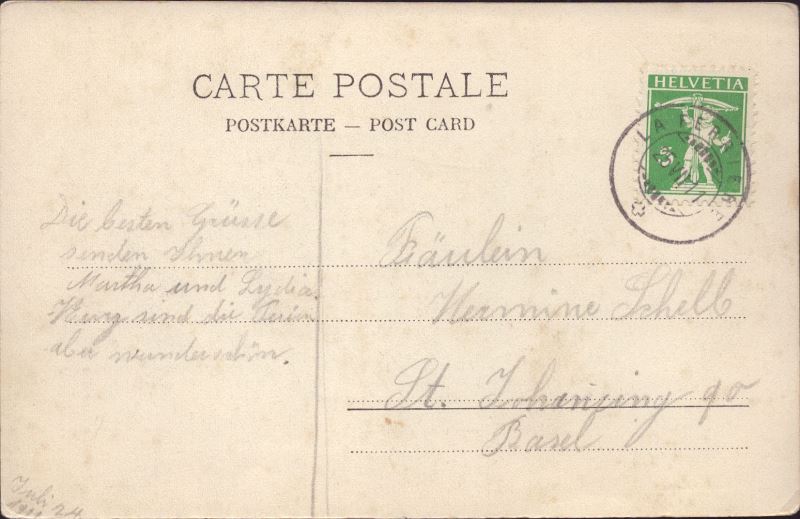 CARTE POSTALE
POSTKARTE — POST CARD
HELVETIA
5
LA FERRIERE
25 VII 11
Die besten Grüsse
senden Ihnen
Martha und Lydia.
Kurz sind die Ferien
aber wunderschön.
Fräulein
Hermine Schelb
St. Johannring 90
Basel
Juli 24